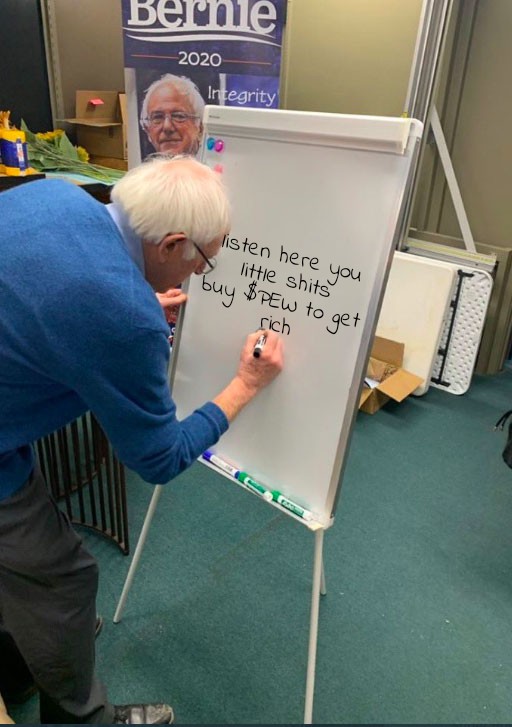 Bernie
2020
Integrity
listen here you
little shits
buy $PEW to get
rich